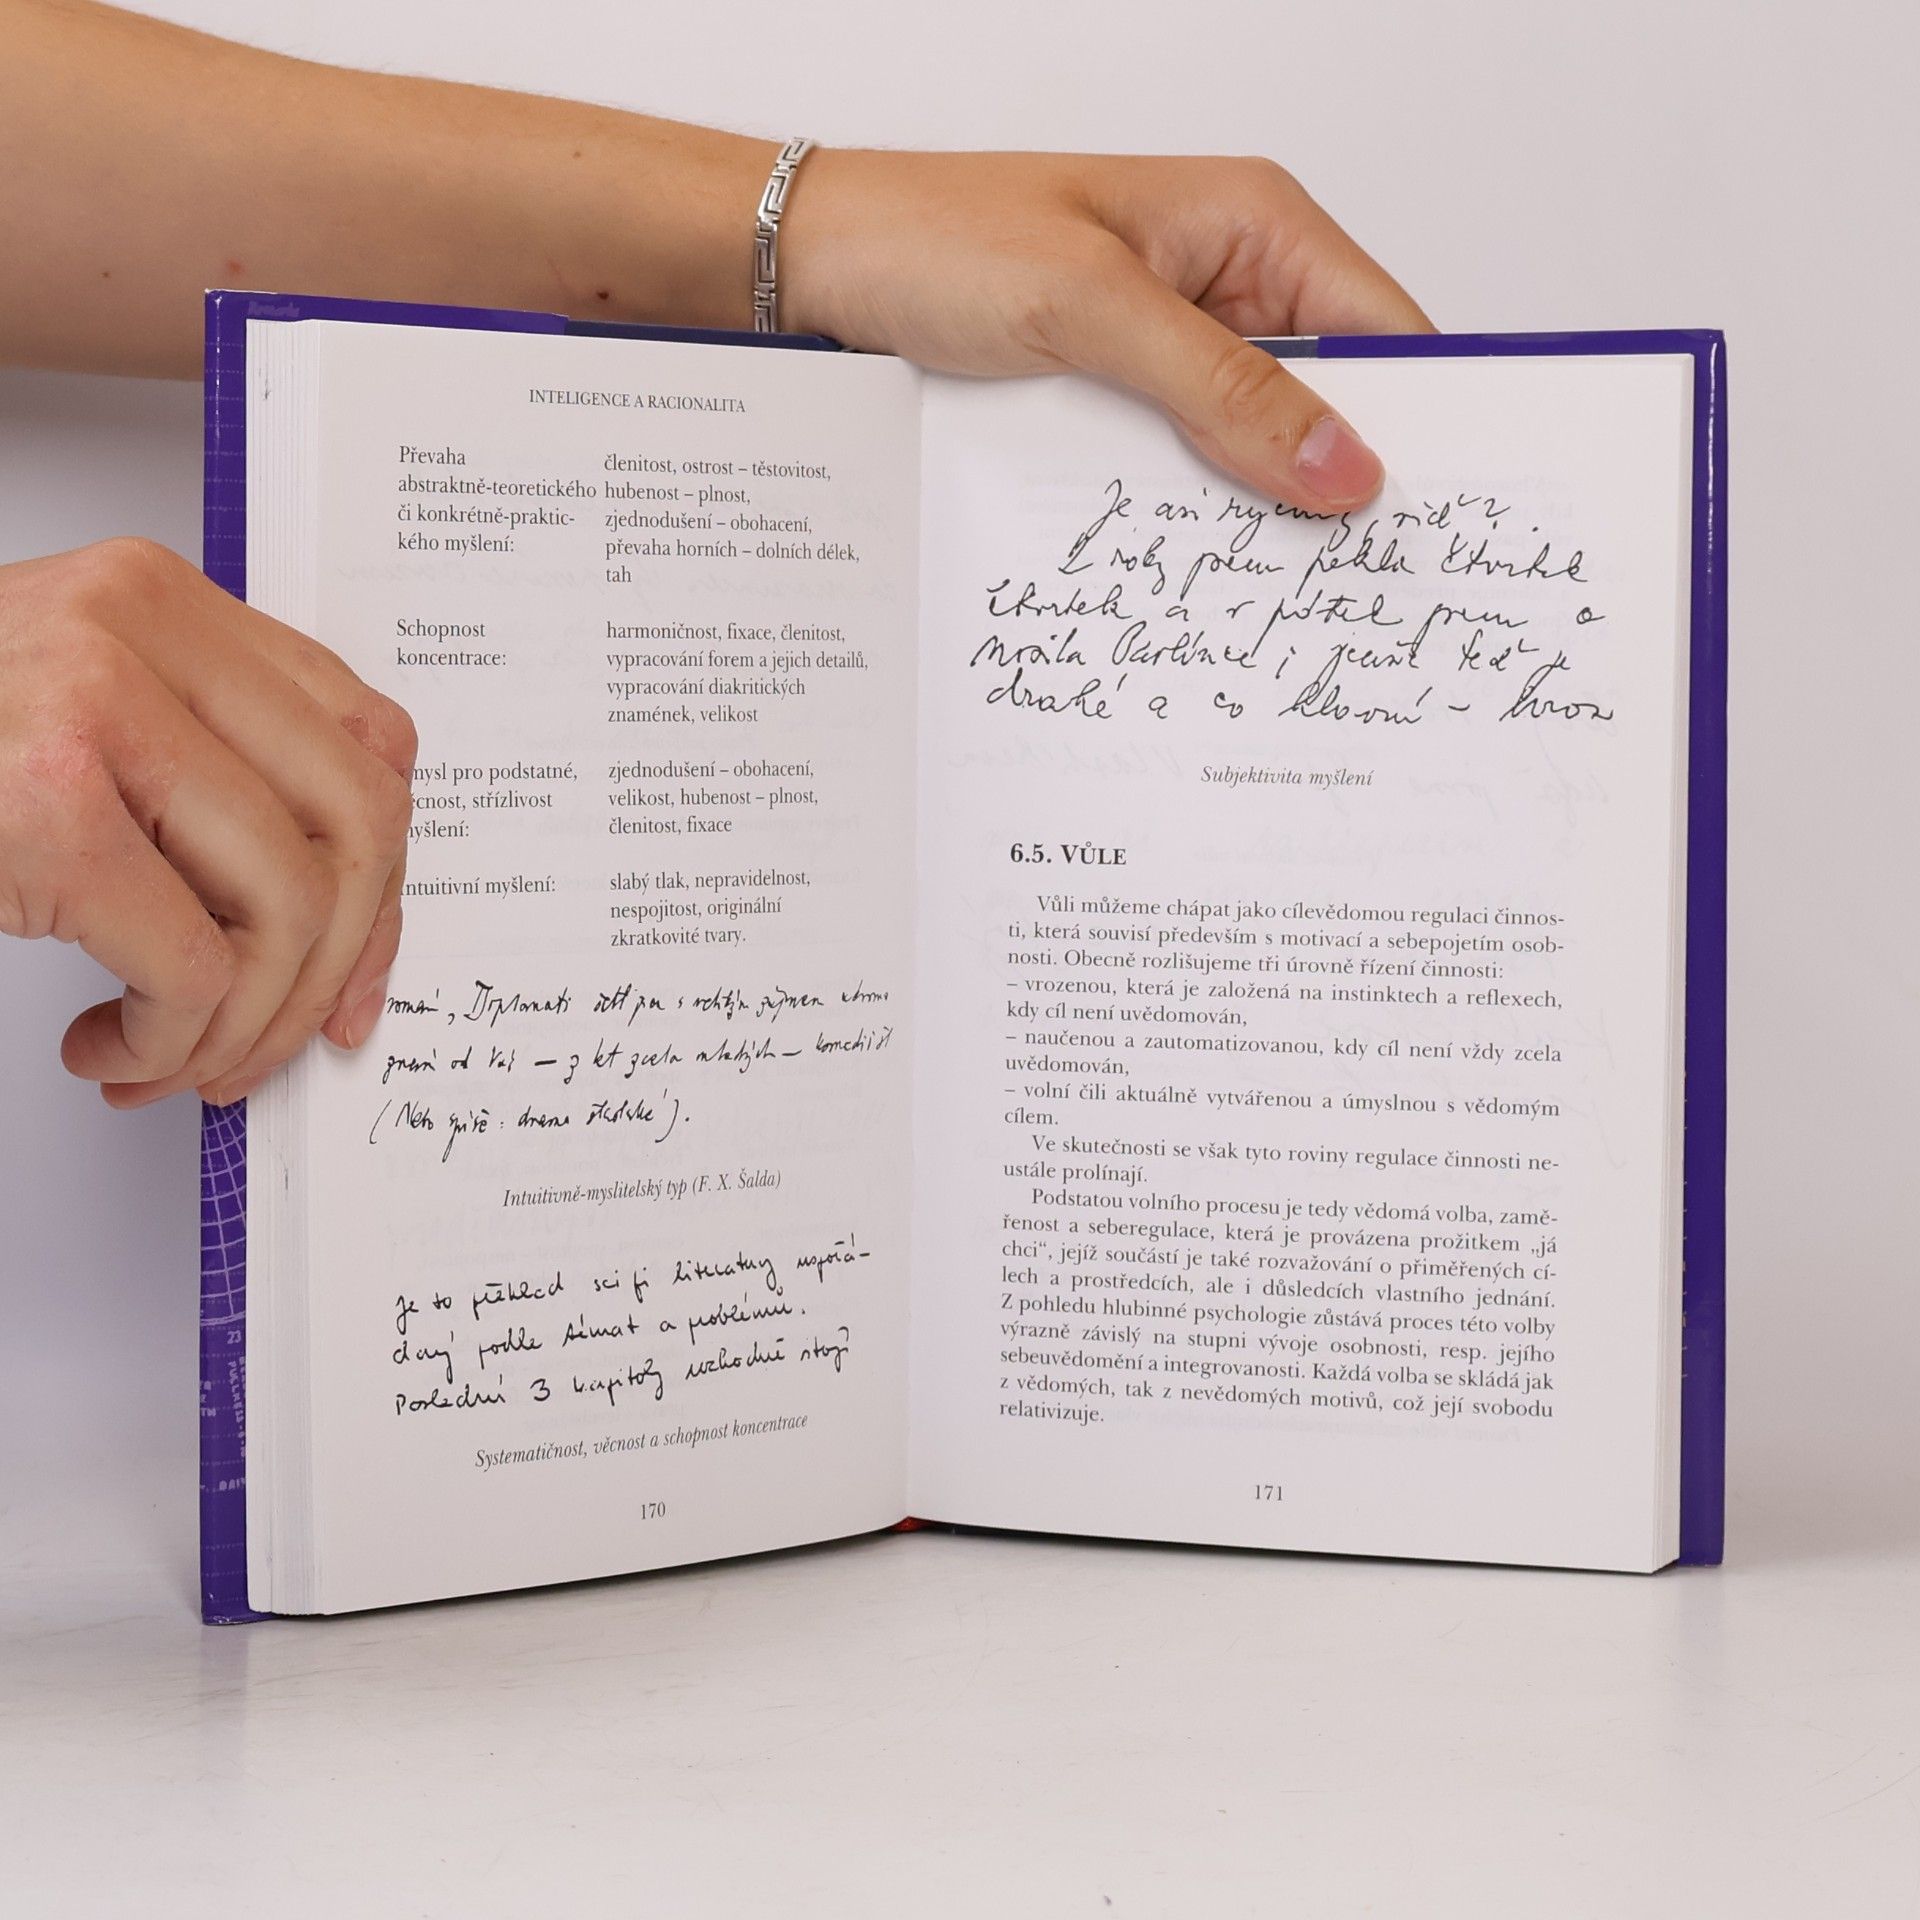 INTELIGENCE A RACIONALITA
Převaha
abstraktně-teoretického
či konkrétně-praktic-
kého myšlení:
členitost, ostrost – těstovitost,
hubenost – plnost,
zjednodušení – obohacení,
převaha horních – dolních délek,
tah
Schopnost
koncentrace:
harmoničnost, fixace, členitost,
vypracování forem a jejich detailů,
vypracování diakritických
znamének, velikost
mysl pro podstatné,
ěcnost, střízlivost
myšlení:
zjednodušení – obohacení,
velikost, hubenost – plnost,
členitost, fixace
ntuitivní myšlení:
slabý tlak, nepravidelnost,
nespojitost, originální
zkratkovité tvary.
román, Diplomati s
od Vás – z zcela mladých –
(Nebo spíše: drama).
Intuitivně-myslitelský typ (F. X. Šalda)
Je to přehled sci fi literatury uspořá-
daný podle témat a problémů.
Poslední 3 kapitoly rozhodně stojí
Systematičnost, věcnost a schopnost koncentrace
170
Je asi viď?
Z jsem pekla čtvrtek
čtvrtek a v pátek jsem o
Pavlínce; teď je
drahé a co hlavní –
Subjektivita myšlení
6.5. VŮLE
Vůli můžeme chápat jako cílevědomou regulaci činnos-
ti, která souvisí především s motivací a sebepojetím osob-
nosti. Obecně rozlišujeme tři úrovně řízení činnosti:
– vrozenou, která je založená na instinktech a reflexech,
kdy cíl není uvědomován,
– naučenou a zautomatizovanou, kdy cíl není vždy zcela
uvědomován,
– volní čili aktuálně vytvářenou a úmyslnou s vědomým
cílem.
Ve skutečnosti se však tyto roviny regulace činnosti ne-
ustále prolínají.
Podstatou volního procesu je tedy vědomá volba, zamě-
řenost a seberegulace, která je provázena prožitkem „já
chci“, jejíž součástí je také rozvažování o přiměřených cí-
lech a prostředcích, ale i důsledcích vlastního jednání.
Z pohledu hlubinné psychologie zůstává proces této volby
výrazně závislý na stupni vývoje osobnosti, resp. jejího
sebeuvědomění a integrovanosti. Každá volba se skládá jak
z vědomých, tak z nevědomých motivů, což její svobodu
relativizuje.
171